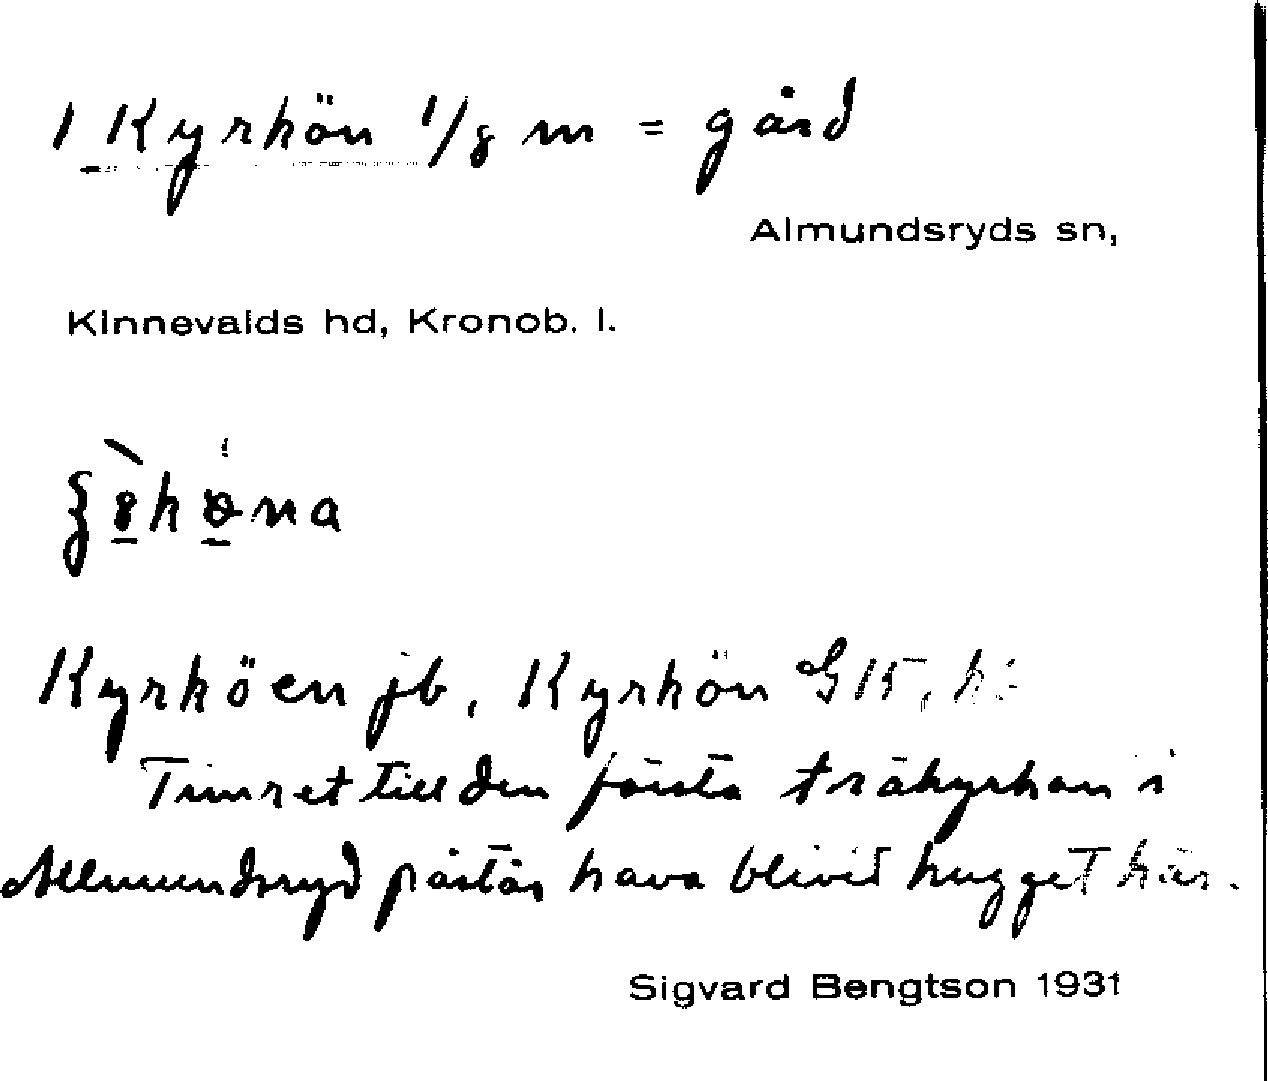 1 Kyrkön 1/8 m = gård
Almundsryds sn,
Kinnevalds hd, Kronob. l.
Kyrköen jb, Kyrkön G 15,
Timret till den första träkyrkan i
Allmundsryd påstås hava blivit hugget här.
Sigvard Bengtson 1931